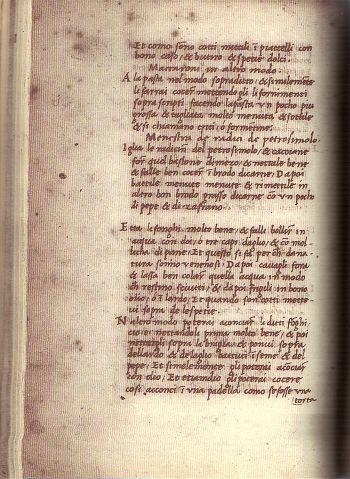 Et como sono cotti mittili ĩ piattelli con
bono caso, & butiro & spetie dolci.
Maccaroni in altro modo.
A la pasta nel modo sopraditto, & similemẽte
li farrai cocer mettendo gli fornimenti
sopra scripti facendo la pasta vn pocho piu
grossa & tagliata molto menuta, & sottile
& si chiamano criti, o formetine.
Menestra de radica de petrosimolo.
Piglia le radiche del petrosimolo, & cacciane
for quel bastone dimezo, & nettale bene
& falle ben cocer ĩ brodo ouarne, Da poi
battile menute menute & rimettile in
altro bon brodo grasso ouarne cõ vn pocho
di pepe & di zafrano.
Netta li fonghi molto bene, & falli bollir in
acqua con doi, o tre capi daglio, & cõ mol-
lucha di pane. Et questo si fa per ch̃ da na-
tura sonno venenosi. Da poi cauagli fora
& lassa ben colar quella acqua in modo
ch̃ restino sciutti, & da poi frigili in bono
olio, o ĩ lardo, Et quando son cotti mette-
ui sopra de le spetie.
In altro modo poterai acconciar li ditti fõghi,
cio e, mettandoli primamẽte bene, & poi
mettergli sopra la bragia & ponui sopra
de lardo & de laglio battuti ĩseme & del
pepe, Et similemente gli poterai acõciar
con olio, Et etiandio gli poterai cocere
cosi acconci ĩ vna padella como se fosse vna
torta